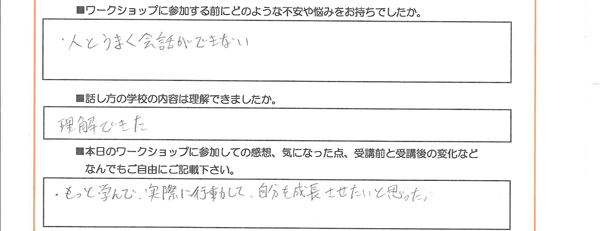 ■ワークショップに参加する前にどのような不安や悩みをお持ちでしたか。
・人とうまく会話ができない
■話し方の学校の内容は理解できましたか。
理解できた
■本日のワークショップに参加しての感想、気になった点、受講前と受講後の変化など
なんでもご自由にご記載下さい。
・もっと学んで、実際に行動して、自分を成長させたいと思った。